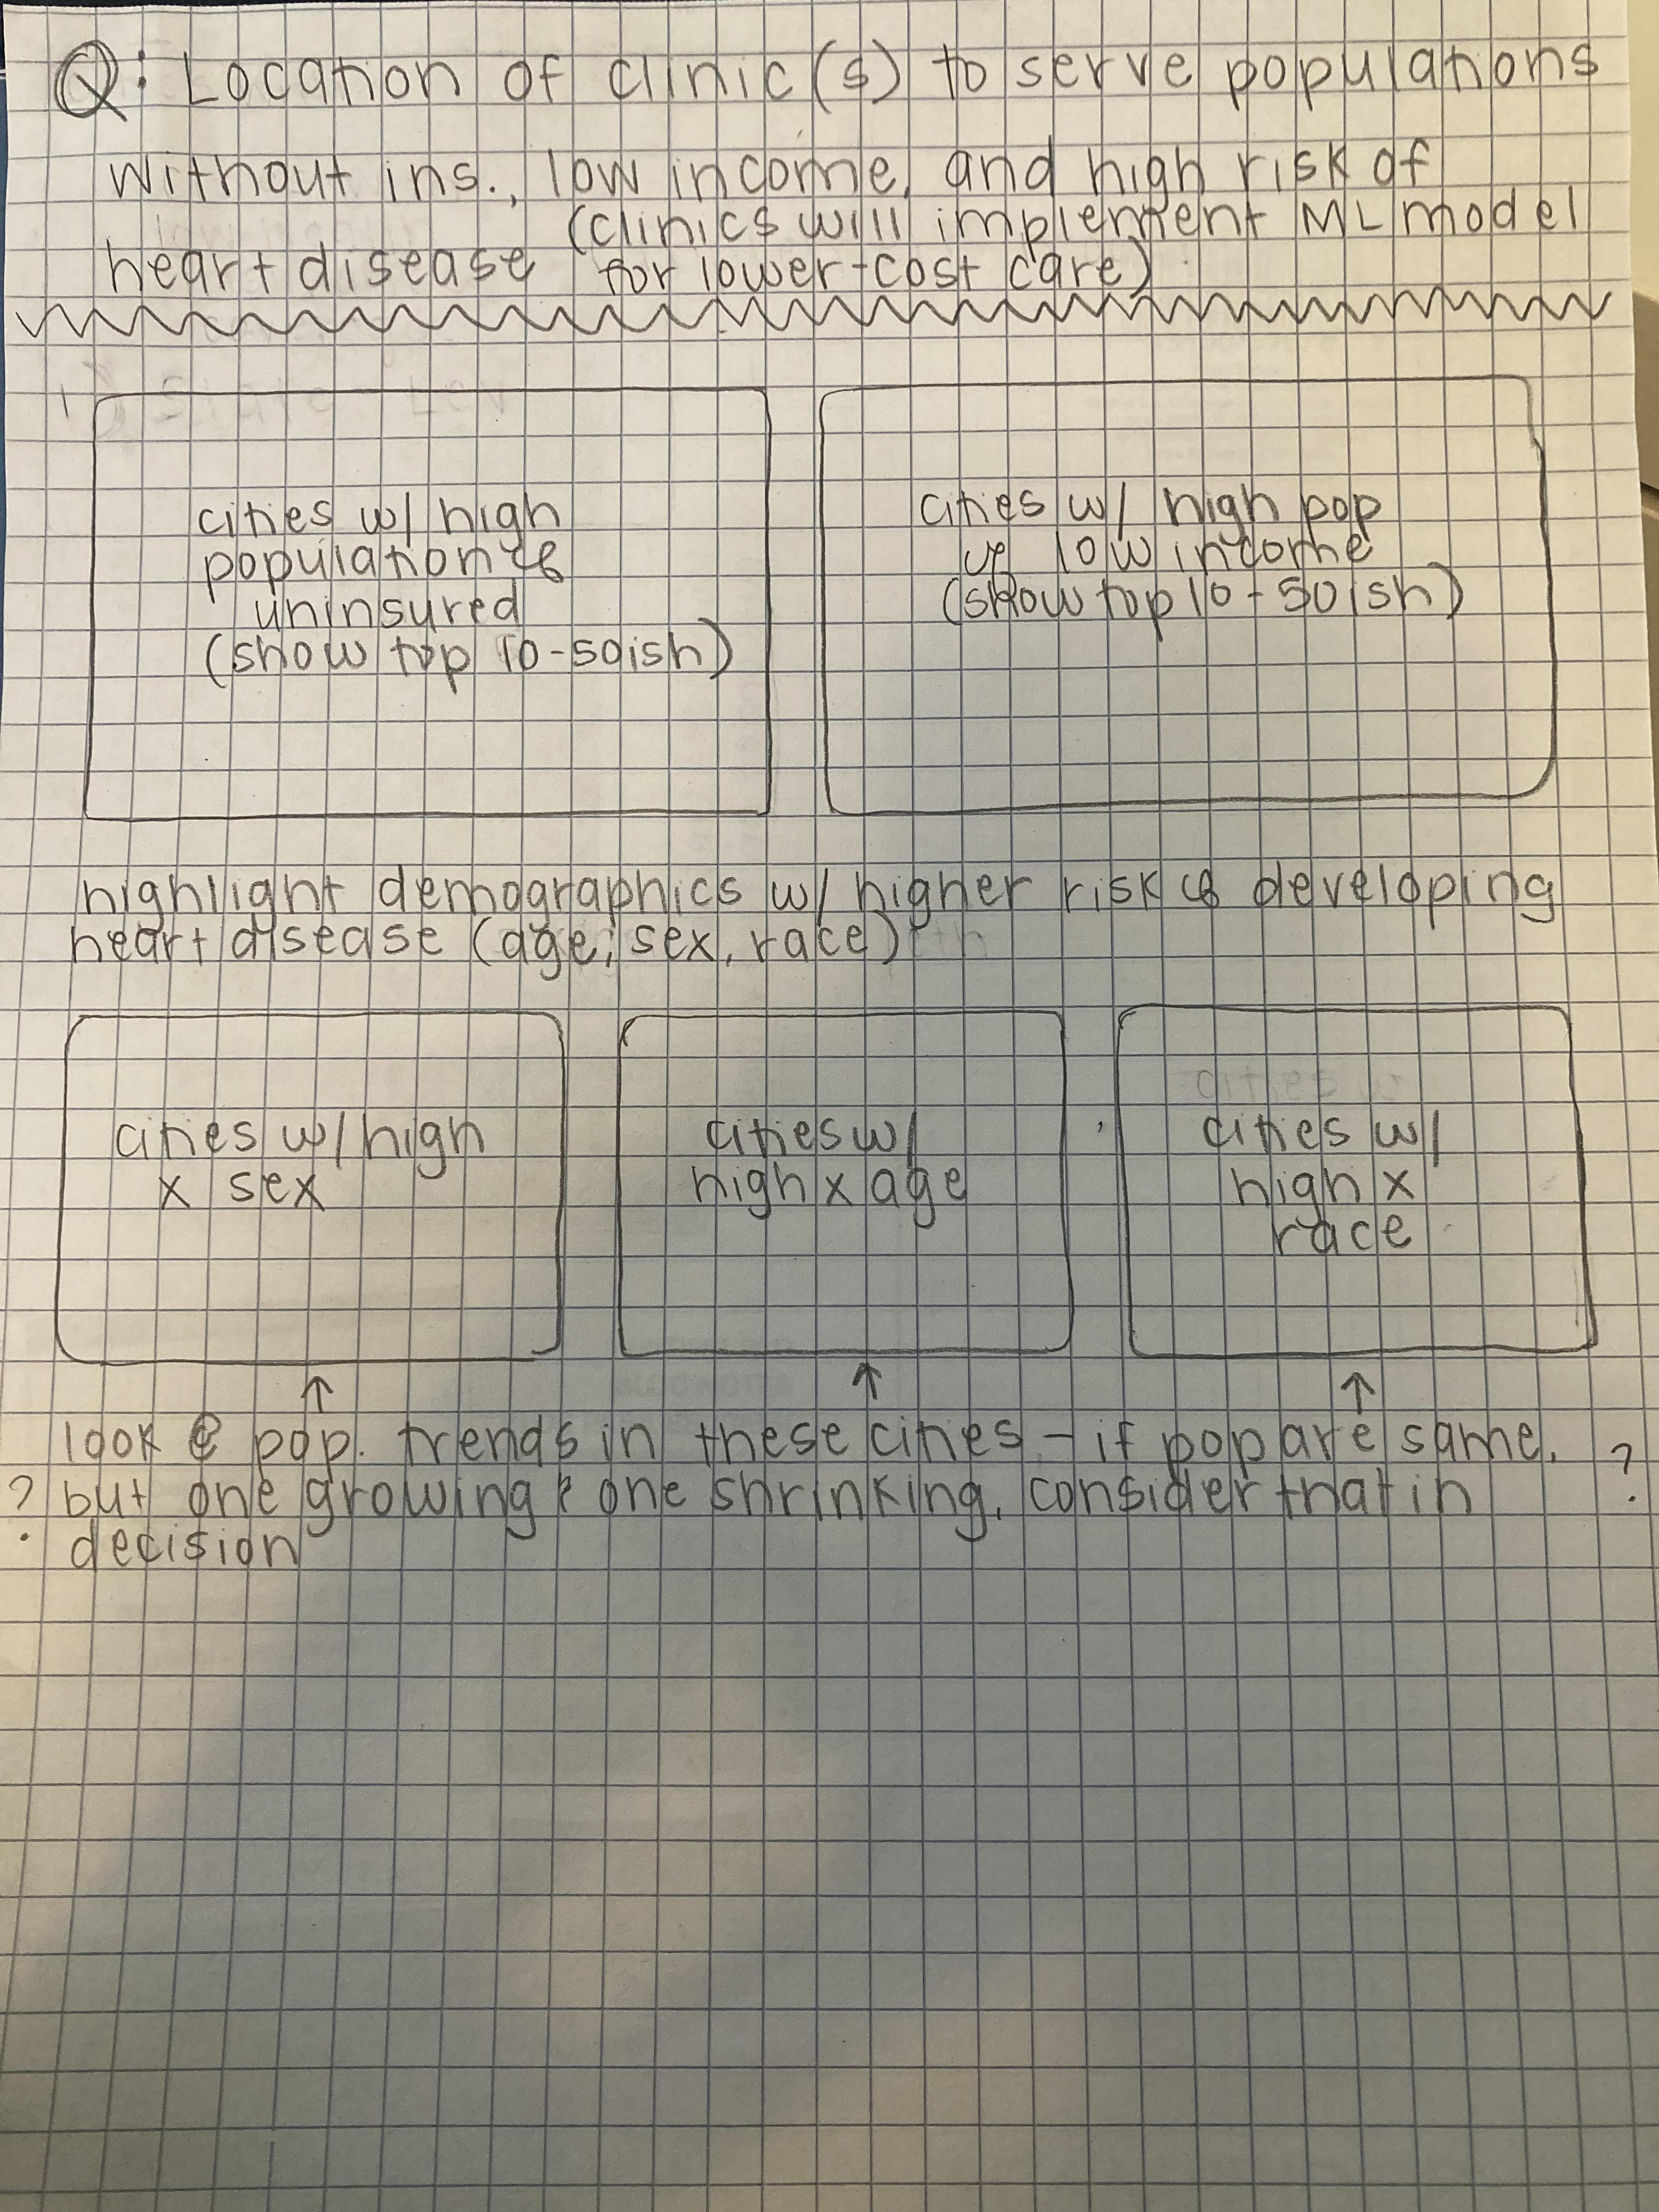 Q: Location of clinic(s) to serve populations
without ins., low income, and high risk of
(clinics will implement ML model
heart disease for lower-cost care)
cities w/ high
population of
uninsured
(show top 10-50ish)
cities w/ high pop
of low income
(show top 10-50ish)
highlight demographics w/ higher risk of developing
heart disease (age, sex, race)
cities w/ high
x sex
cities w/
high x age
cities w/
high x
race
↑ ↑ ↑
look @ pop. trends in these cities - if pop are same,
? but one growing & one shrinking, consider that in ?
decision